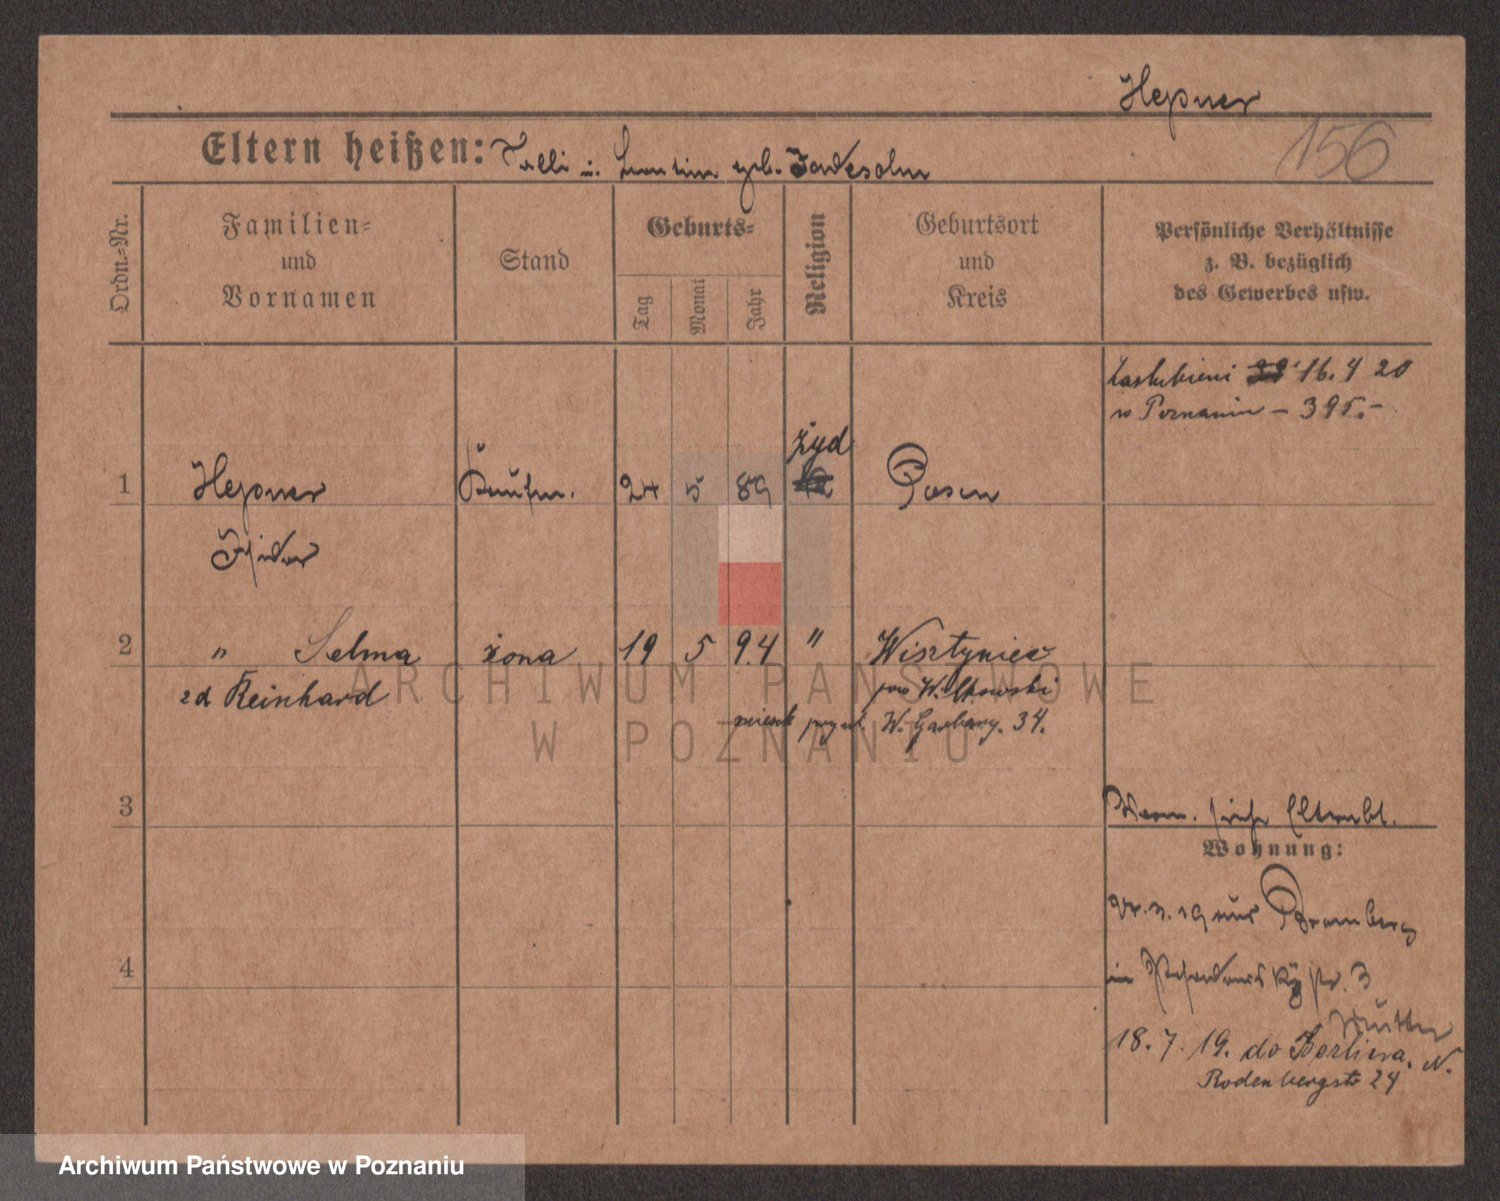 Hepner
156
Eltern heißen: u. geb. Jadesohn
Ordn.=Nr.
Familien=
und
Vornamen
Stand
Geburts=
Tag
Monat
Jahr
Religion
Geburtsort
und
Kreis
Persönliche Verhältnisse
z. B. bezüglich
des Gewerbes usw.
zaślubieni 16. 4 20
w Poznaniu – 395.–
żyd
1 Hepner Kaufm. 24 5 89 Posen
Isidor
2 " Selma żona 19 5 94 " Wisztyniec
zd Reinhard pow Wilkowski
mieszk przy ul. W. Garbary. 34.
3
Wohnung:
aus Bromberg
4
in str. 3
Mutter
18. 7. 19. do Berlina. N.
Rodenbergstr 24
ARCHIWUM PAŃSTWOWE
W POZNANIU
Archiwum Państwowe w Poznaniu